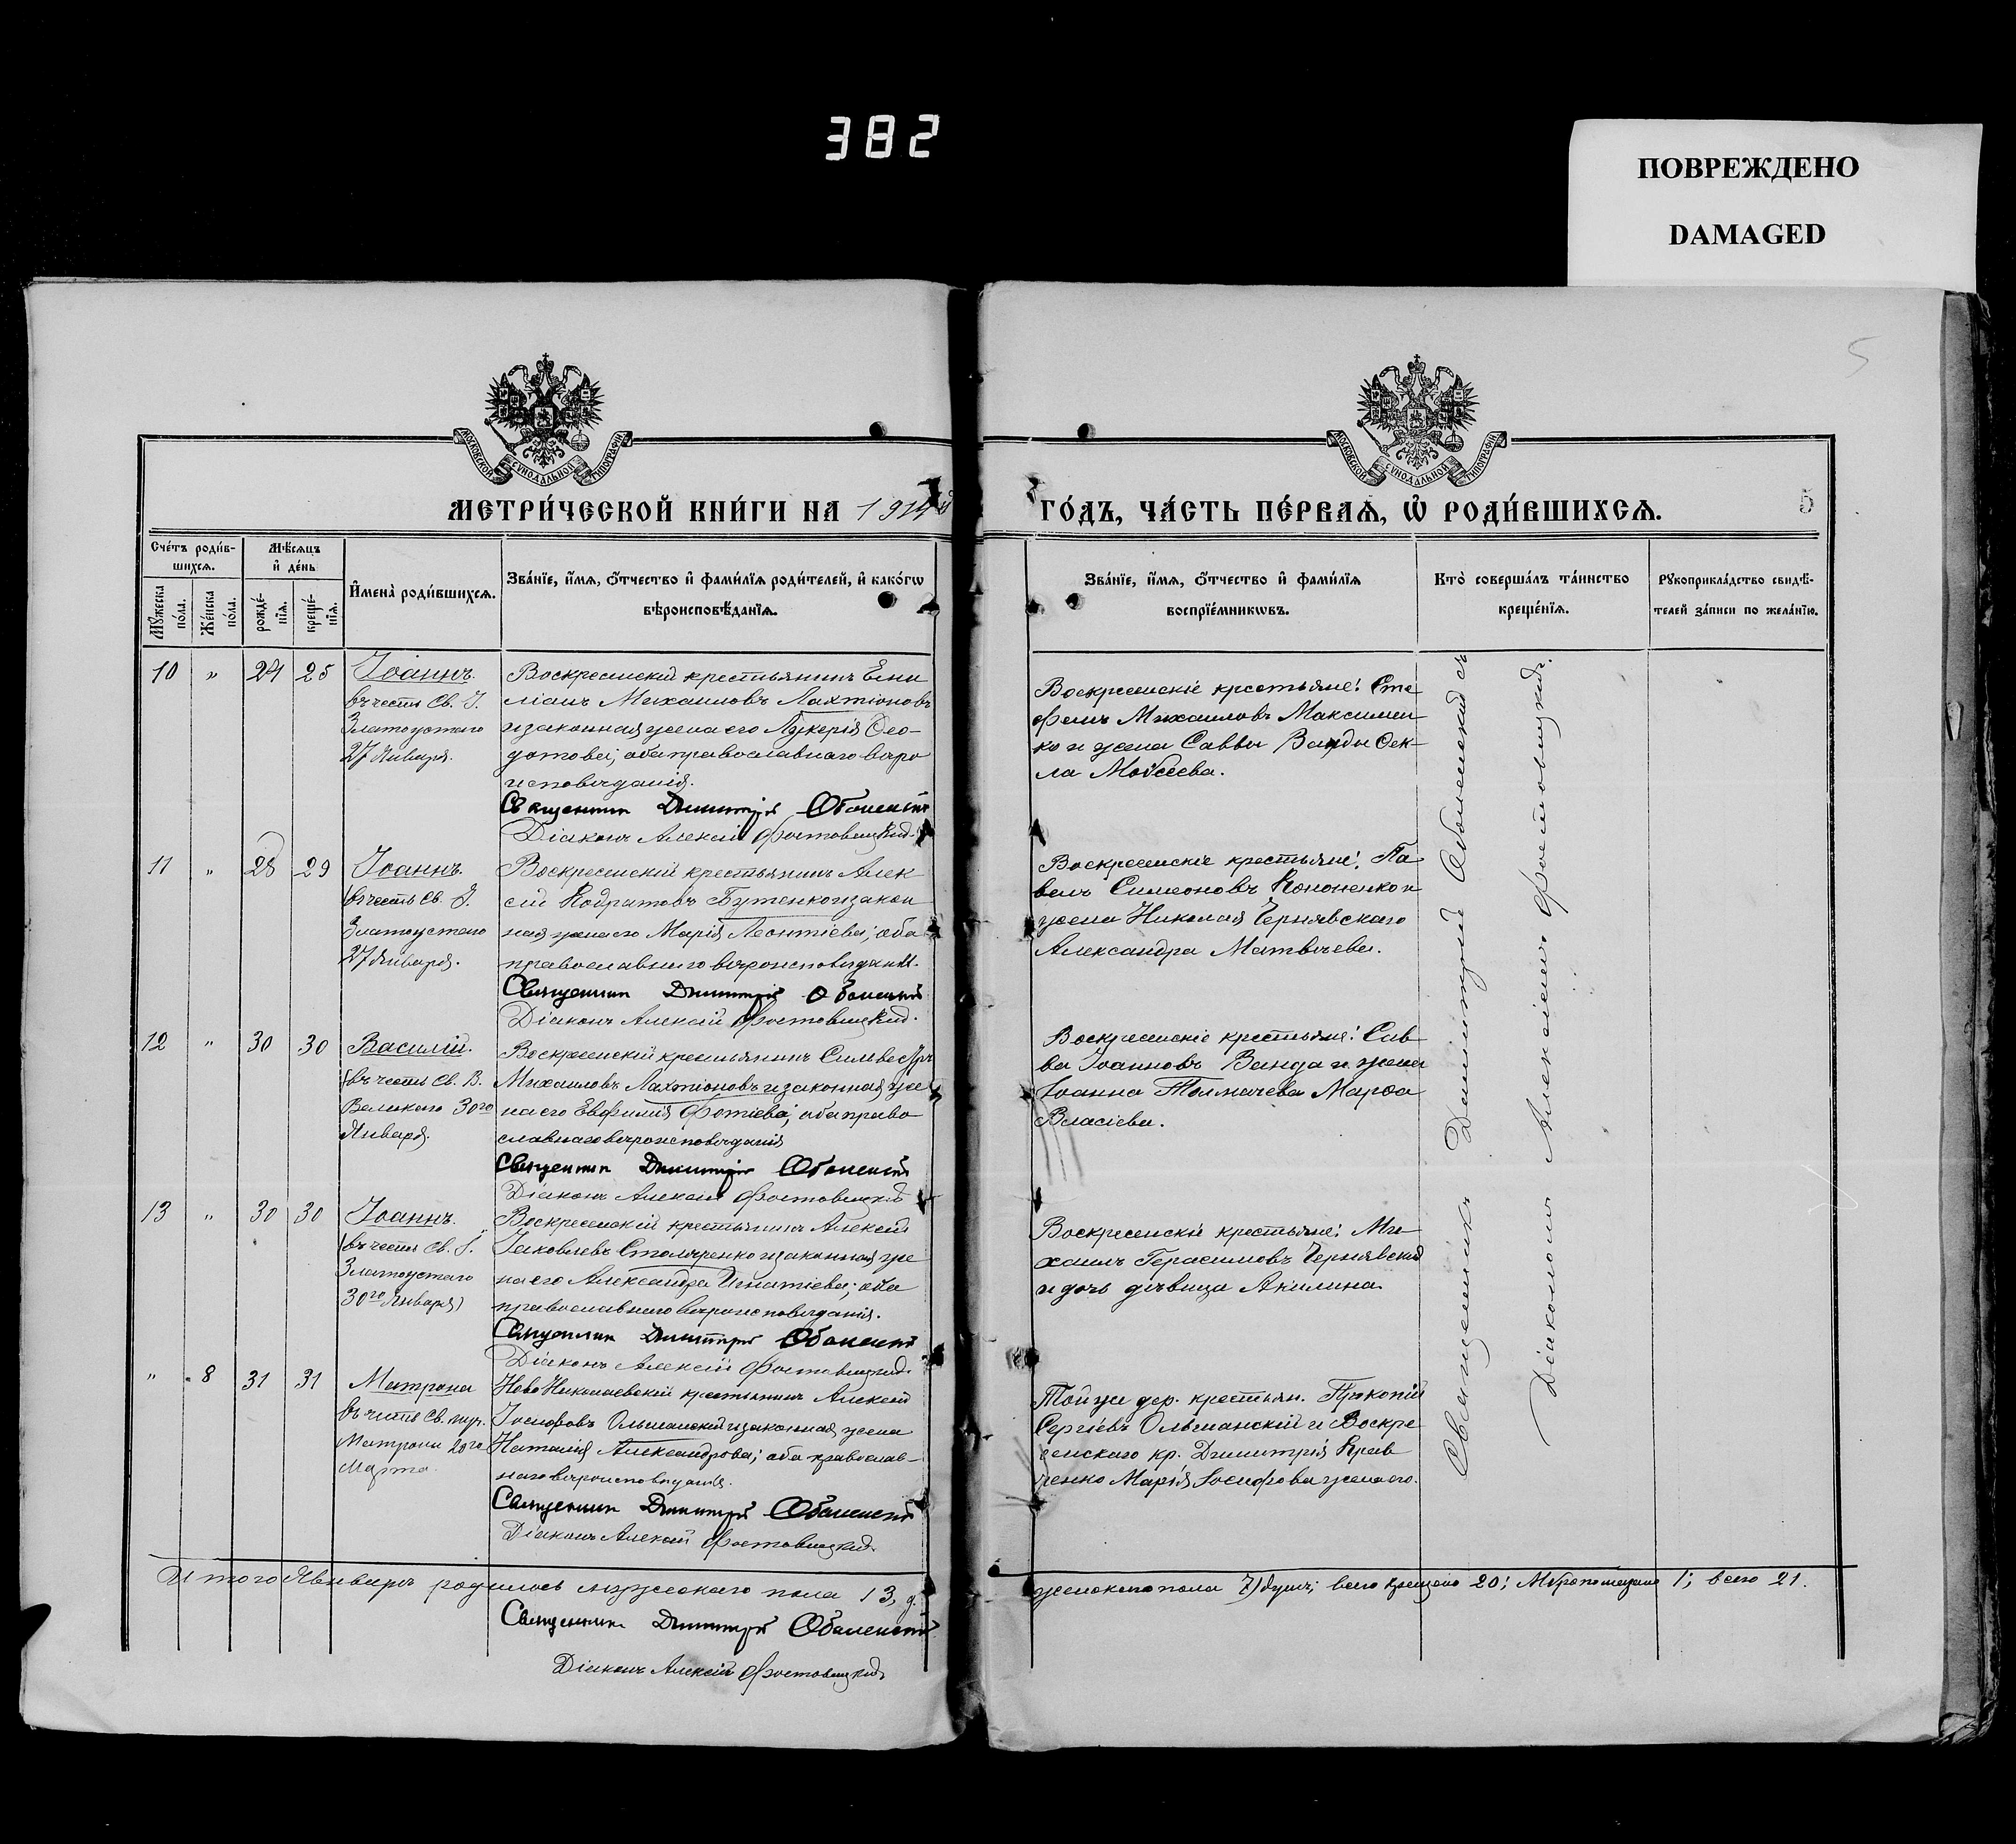 382
ПОВРЕЖДЕНО
DAMAGED
5
МОСКОВСКОЙ СУНОДАЛЬНОЙ ТИПОГРАФІИ
МОСКОВСКОЙ СУНОДАЛЬНОЙ ТИПОГРАФІИ
МЕТРИ́ЧЕСКОЙ КНИ́ГИ НА 1914й
ГО́ДЪ, ЧА́СТЬ ПЕ́РВАѦ, Ѡ҆ РОДИ́ВШИХСѦ.
5
Сче́тъ роди́в-
шихсѧ.
Мꙋ́жеска по́ла.
Же́нска по́ла.
Мѣ́сѧцъ
и҆ де́нь
рожде́-
нїѧ.
креще́-
нїѧ.
И҆мена̀ роди́вшихсѧ.
Зва́нїе, и҆́мѧ, ѻ҆́тчество и҆ фами́лїѧ роди́телей, и҆ како́гѡ
вѣроисповѣ́данїѧ.
Зва́нїе, и҆́мѧ, ѻ҆́тчество и҆ фами́лїѧ
воспрїе́мникѡвъ.
Кто̀ соверша́лъ та́инство
креще́нїѧ.
Рꙋкоприкла́дство свидѣ́-
телей за́писи по жела́нїю.
10 " 24 25
Іоаннъ.
въ честь Св. І.
Златоустаго
27 Января.
Воскресенскій крестьянинъ Еми
ліанъ Михаиловъ Лахтіоновъ
и законная жена его Лукерія Ѳео-
дотова; оба православнаго вѣро
исповѣданія.
Священникъ Димитрій Оболенскій
Діаконъ Алексій Фростовицкій.
Воскресенскіе крестьяне: Сте
фанъ Михаиловъ Максимен
ко и жена Саввы Ванды Ѳек-
ла Моѵсеева.
11 " 28 29
Іоаннъ.
въ честь Св. І.
Златоустаго
27 Января.
Воскресенскій крестьянинъ Алек
сій Кодратовъ Бутенко и закон
ная жена его Марія Леонтіева; оба
православнаго вѣроисповѣданія.
Священникъ Димитрій Оболенскій
Діаконъ Алексій Фростовицкій.
Воскресенскіе крестьяне: Па
велъ Симеоновъ Кононенко и
жена Николая Чернявскаго
Александра Матвѣева.
12 " 30 30
Василій.
(въ честь Св. В.
Великаго 30го
Января.
Воскресенскій крестьянинъ Сильвестръ
Михаиловъ Лахтіоновъ и законная же
на его Евфимія Фотіева; оба право
славнаго вѣроисповѣданія
Священникъ Димитрій Оболенскій
Діаконъ Алексій Фростовицкій
Воскресенскіе крестьяне: Сав
ва Іоанновъ Ванда и жена
Іоанна Толмачева Марѳа
Власіева.
13 " 30 30
Іоаннъ.
(въ честь Св. І.
Златоустаго
30го Января)
Воскресенскій крестьянинъ Алексій
Іаковлевъ Столяренко и законная же
на его Александра Игнатіева; оба
православнаго вѣроисповѣданія.
Священникъ Димитрій Оболенскій
Діаконъ Алексій Фростовицкій.
Воскресенскіе крестьяне: Ми
хаилъ Герасимовъ Чернявскій
и дочь дѣвица Акилина.
" 8 31 31
Матрона
въ честь Св. муч.
Матроны 20го
Марта.
Ново Николаевскій крестьянинъ Алексій
Іосифовъ Ольшанскій и законная жена
Наталія Александрова; оба православ-
наго вѣроисповѣданія.
Священникъ Димитрій Оболенскій
Діаконъ Алексій Фростовицкій.
Той же дер. крестьян. Прокопій
Сергіевъ Ольшанскій и Воскре
сенскаго кр. Димитрія Крав
ченко Марія Іосифова жена его.
Священникъ Димитрій Оболенскій съ
Діакономъ Алексіемъ Фростовицкимъ.
Итого Январъ родилось мужескаго пола 13, д.
женскаго пола 7) душъ; всего крещено 20; 1; всего 21.
Священникъ Димитрій Оболенскій
Діаконъ Алексій Фростовицкій